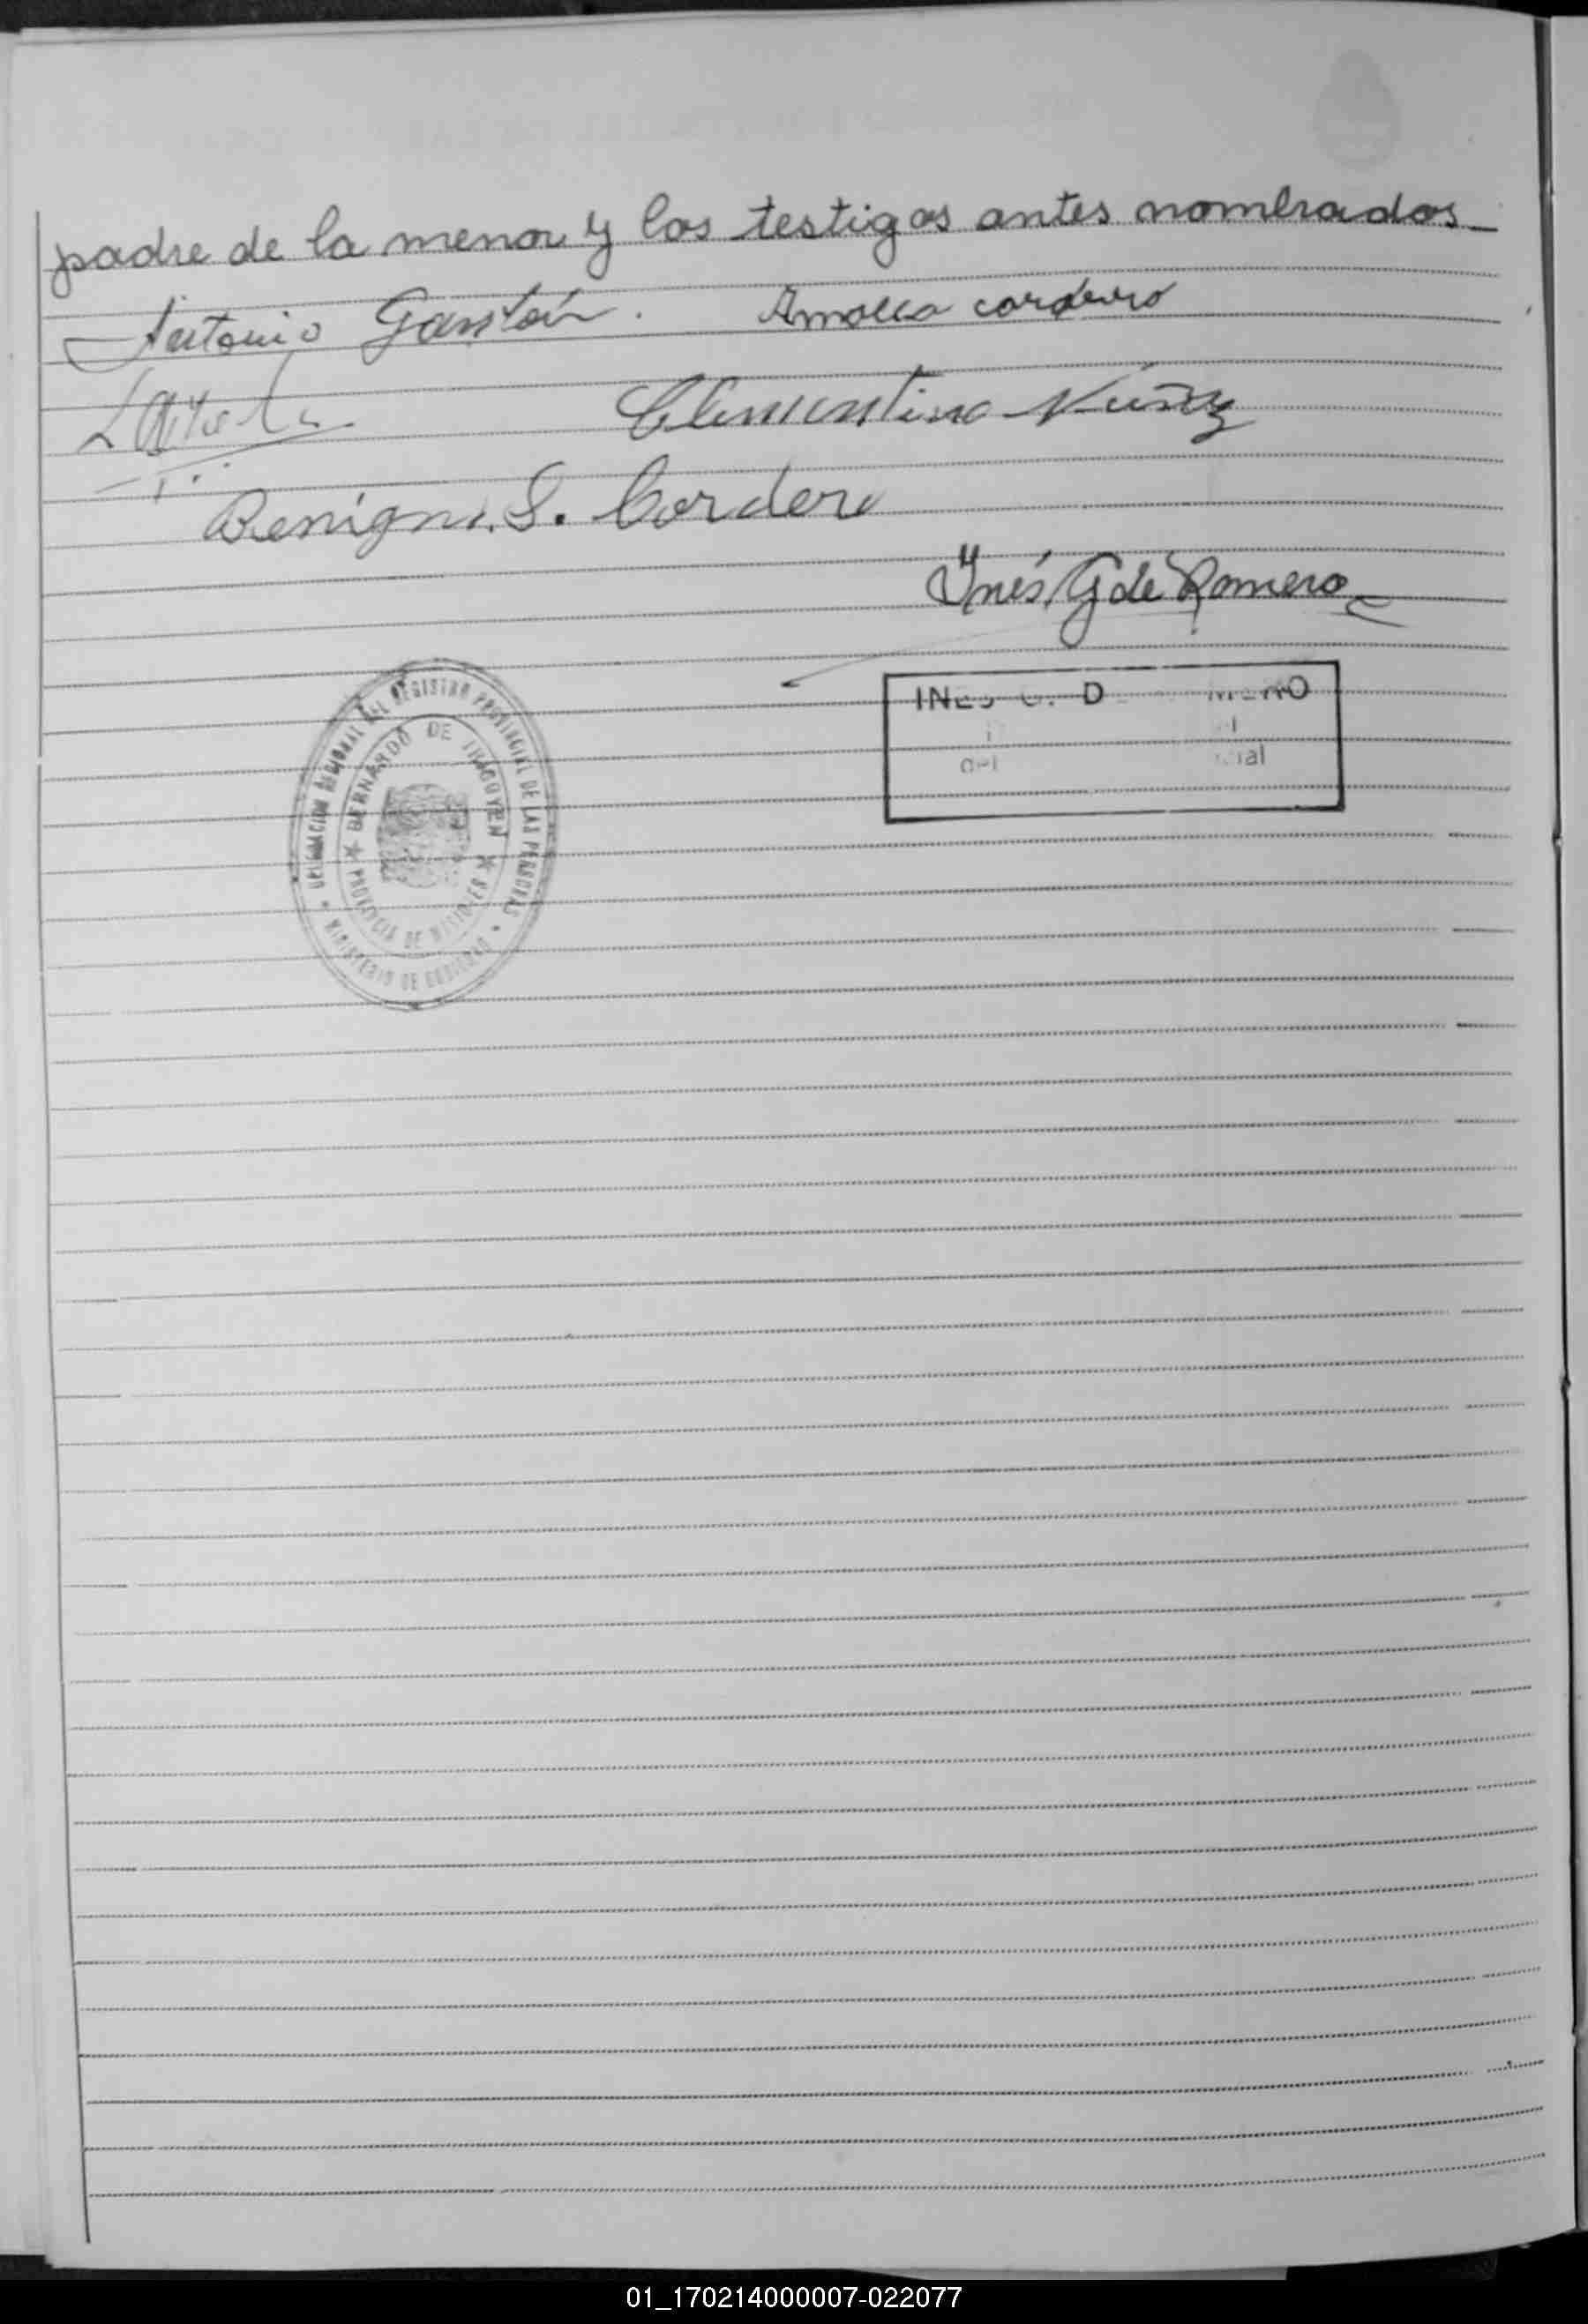 padre de la menor y los testigos antes nombrados
Antonio Gastón. Amalia cordeiro
Clementino Núñez
Benigno S. Cordero
Inés G de Romero
DELEGACION REGIONAL DEL REGISTRO PROVINCIAL DE LAS PERSONAS
BERNARDO DE IRIGOYEN
PROVINCIA DE MISIONES
MINISTERIO DE GOBIERNO
01_170214000007-022077